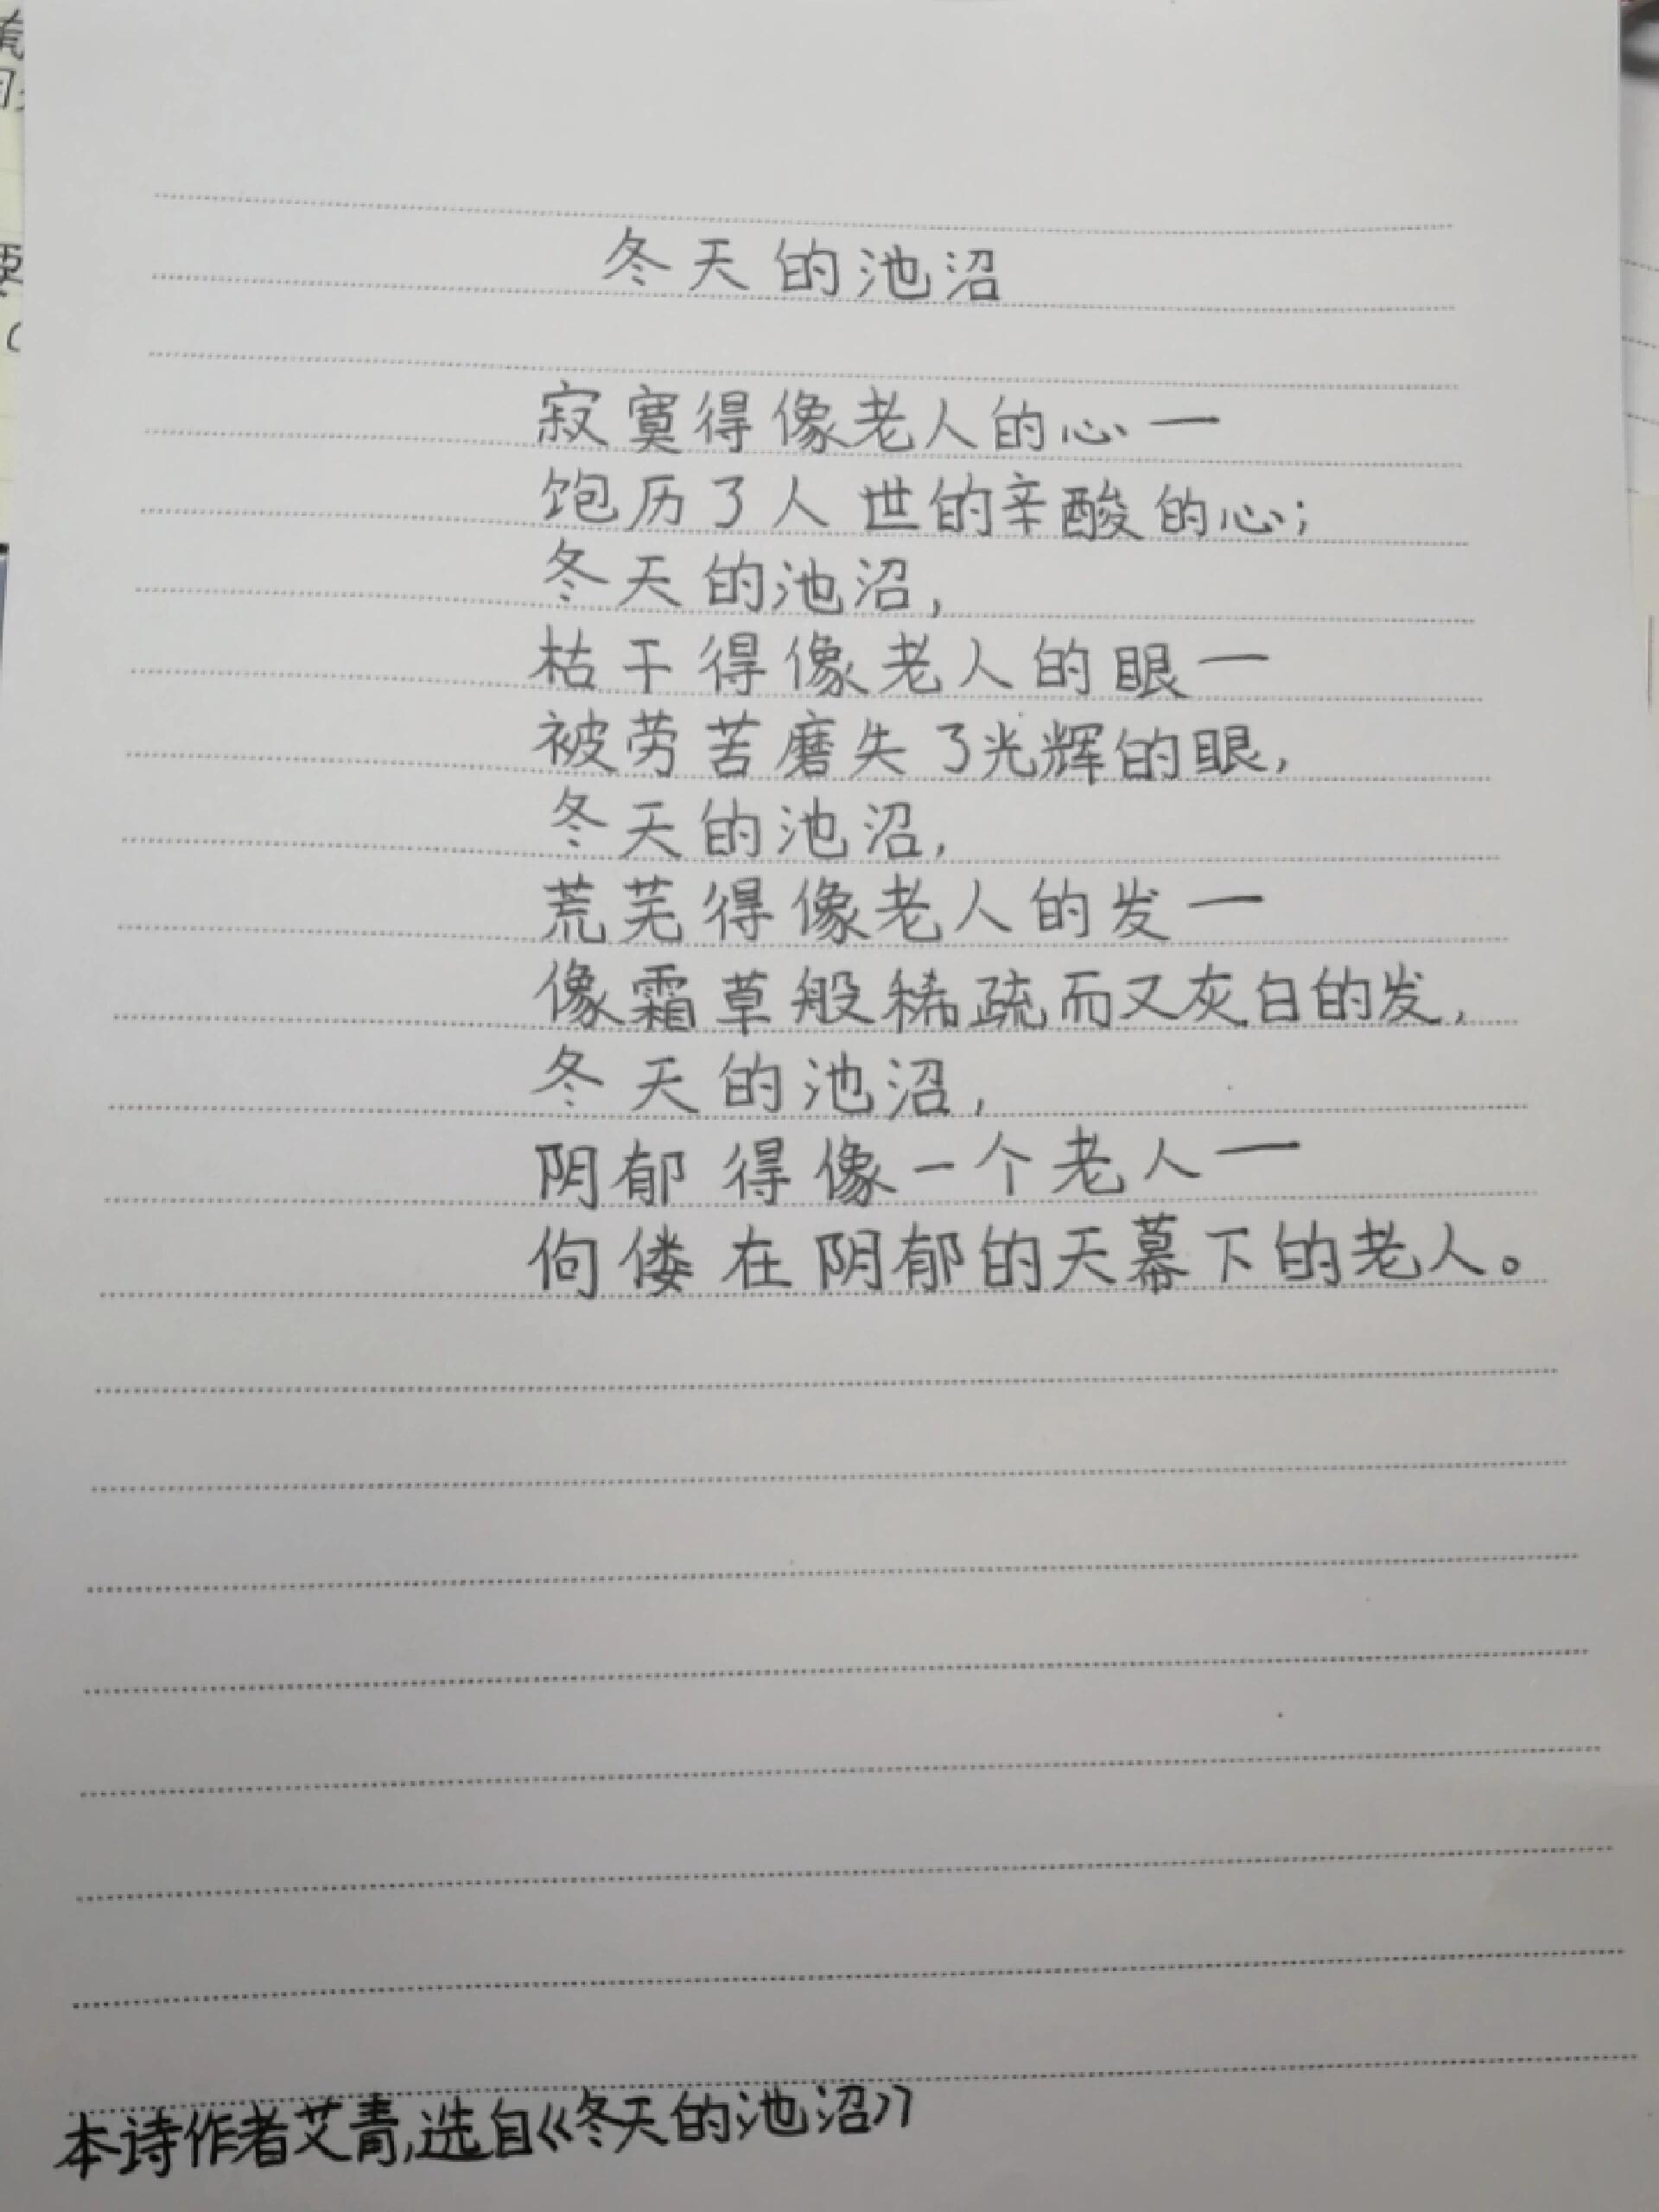 冬天的池沼
寂寞得像老人的心—
饱历了人世的辛酸的心;
冬天的池沼,
枯干得像老人的眼—
被劳苦磨失了光辉的眼,
冬天的池沼,
荒芜得像老人的发—
像霜草般稀疏而又灰白的发,
冬天的池沼,
阴郁得像一个老人—
佝偻在阴郁的天幕下的老人。
本诗作者艾青,选自《冬天的池沼》